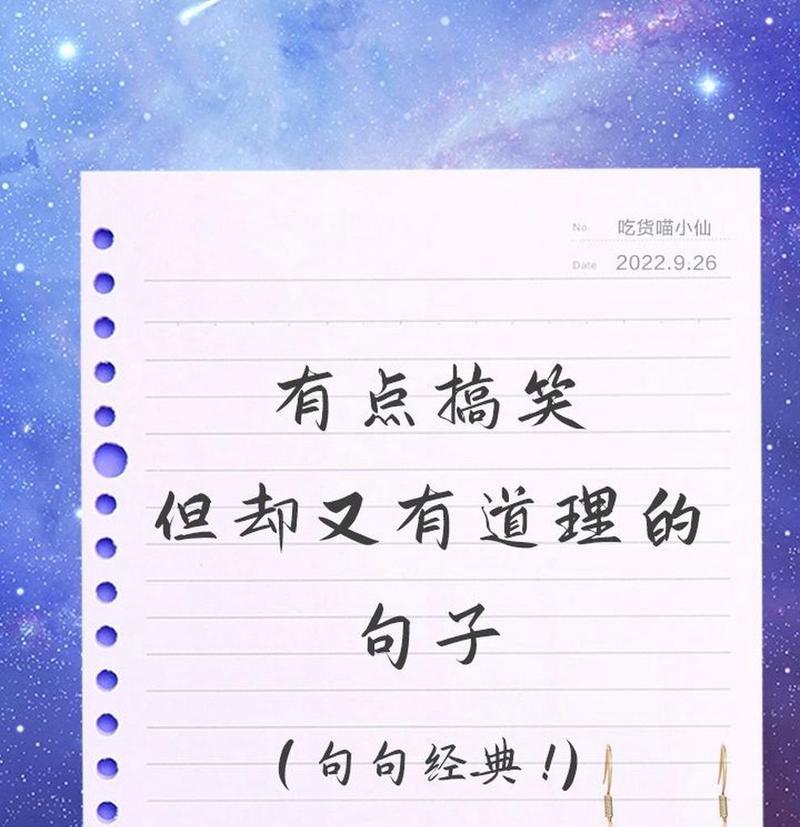 No 吃货喵小仙
Date 2022.9.26
有点搞笑
但却又有道理的
句子
(句句经典!)